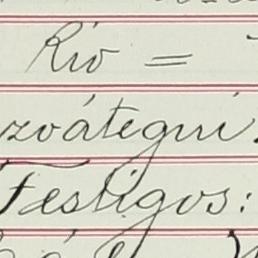 Rio =
zvátegui.
Testigos: